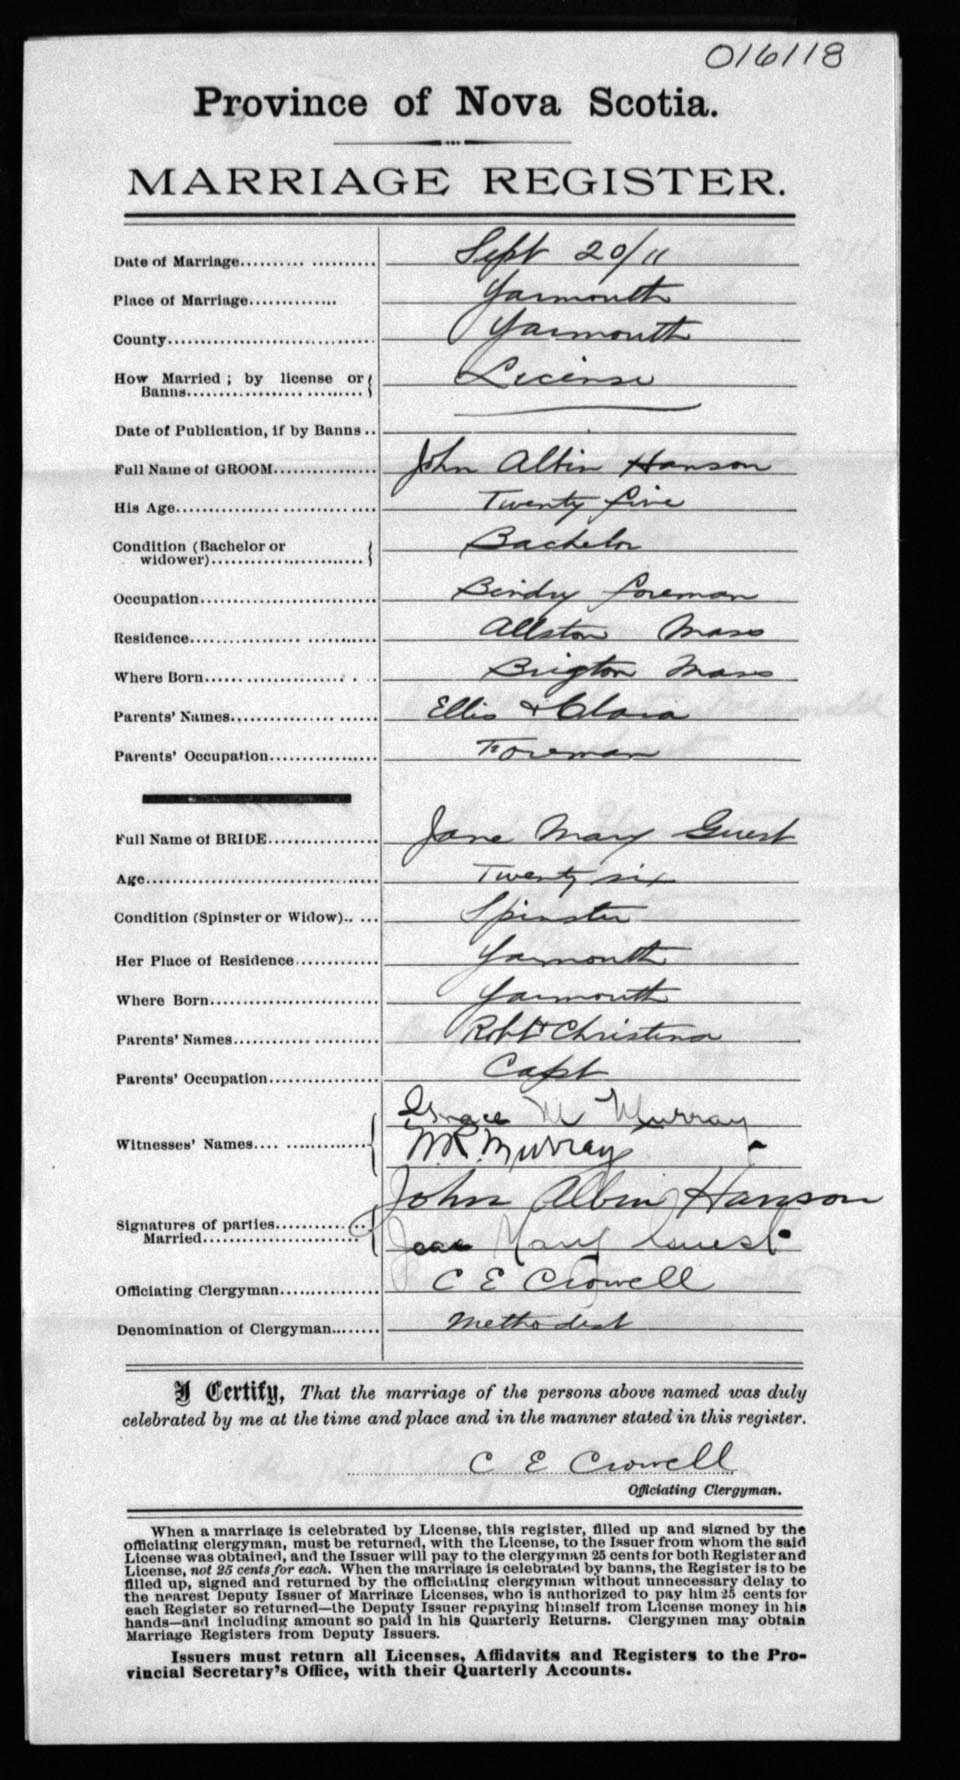 016118
Province of Nova Scotia.
MARRIAGE REGISTER.
Date of Marriage.......... .......... Sept 20/11
Place of Marriage............. Yarmouth
County.............................. Yarmouth
How Married ; by license or
Banns.................. ......... License
Date of Publication, if by Banns ..
Full Name of GROOM................ John Albin Hanson
His Age............................... Twenty five
Condition (Bachelor or
widower).......................... Bachelor
Occupation........................... Bindry foreman
Residence................. ........... Allston Mass
Where Born..................... . . . Brigton Mass
Parents' Names................ ....... Ellis & Clara
Parents' Occupation................. Foreman
Full Name of BRIDE................. Jane Mary Guest
Age.................................. Twenty six
Condition (Spinster or Widow).. ... Spinster
Her Place of Residence............. Yarmouth
Where Born.......................... Yarmouth
Parents' Names............ ........... Robt & Christina
Parents' Occupation................. Capt
Grace M Murray
Witnesses' Names.... .............. W.R. Murray
John Albin Hanson
Signatures of parties...............
Married......................... Mary Guest
Officiating Clergyman............... C E Crowell
Denomination of Clergyman........ Methodist
I Certify, That the marriage of the persons above named was duly
celebrated by me at the time and place and in the manner stated in this register.
C E Crowell
Officiating Clergyman.
When a marriage is celebrated by License, this register, filled up and signed by the
officiating clergyman, must be returned, with the License, to the Issuer from whom the said
License was obtained, and the Issuer will pay to the clergyman 25 cents for both Register and
License, not 25 cents for each. When the marriage is celebrated by banns, the Register is to be
filled up, signed and returned by the officiating clergyman without unnecessary delay to
the nearest Deputy Issuer of Marriage Licenses, who is authorized to pay him 25 cents for
each Register so returned—the Deputy Issuer repaying himself from License money in his
hands—and including amount so paid in his Quarterly Returns. Clergymen may obtain
Marriage Registers from Deputy Issuers.
Issuers must return all Licenses, Affidavits and Registers to the Pro-
vincial Secretary's Office, with their Quarterly Accounts.